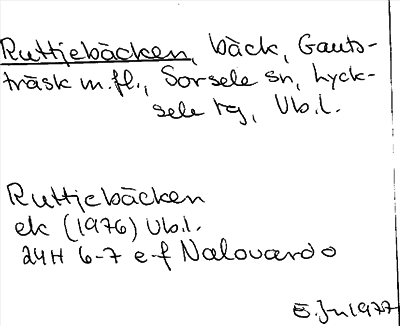 Ruttjebäcken, bäck, Gauts-
träsk m.fl., Sorsele sn, Lyck-
sele tg, Vb.l.
Ruttjebäcken
ek (1976) Vb.l.
24H 6-7 e-f Nalovardo
1977